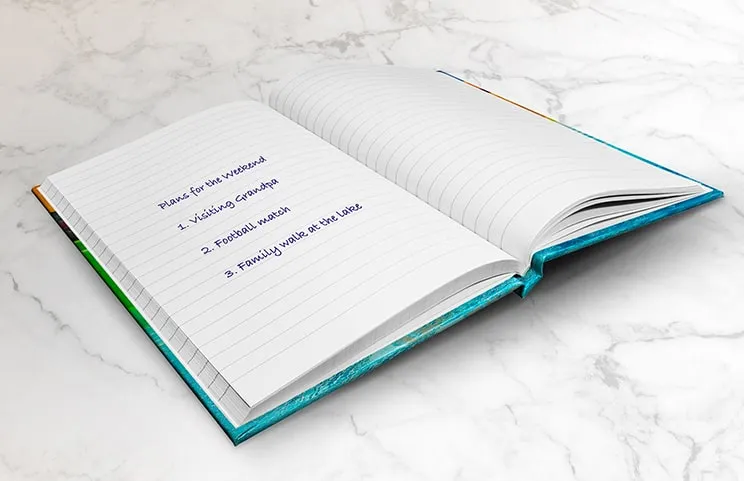 Plans for the Weekend
1. Visiting Grandpa
2. Football match
3. Family walk at the lake